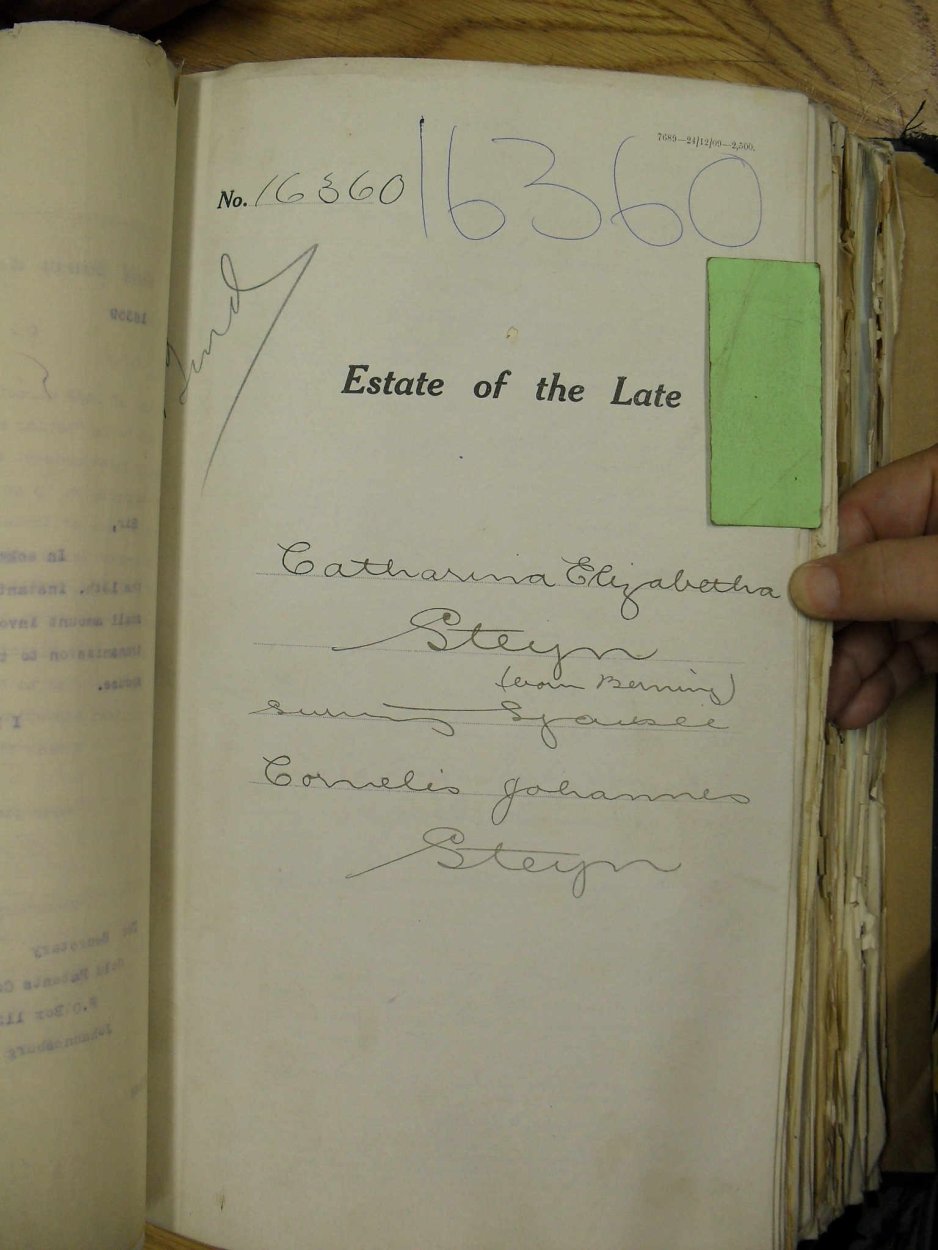 7689—24/12/09—2,500.
No. 16360 16360
Estate of the Late
Catharina Elizabetha
Steyn
(born Berning)
surviving Spouse
Cornelis Johannes
Steyn